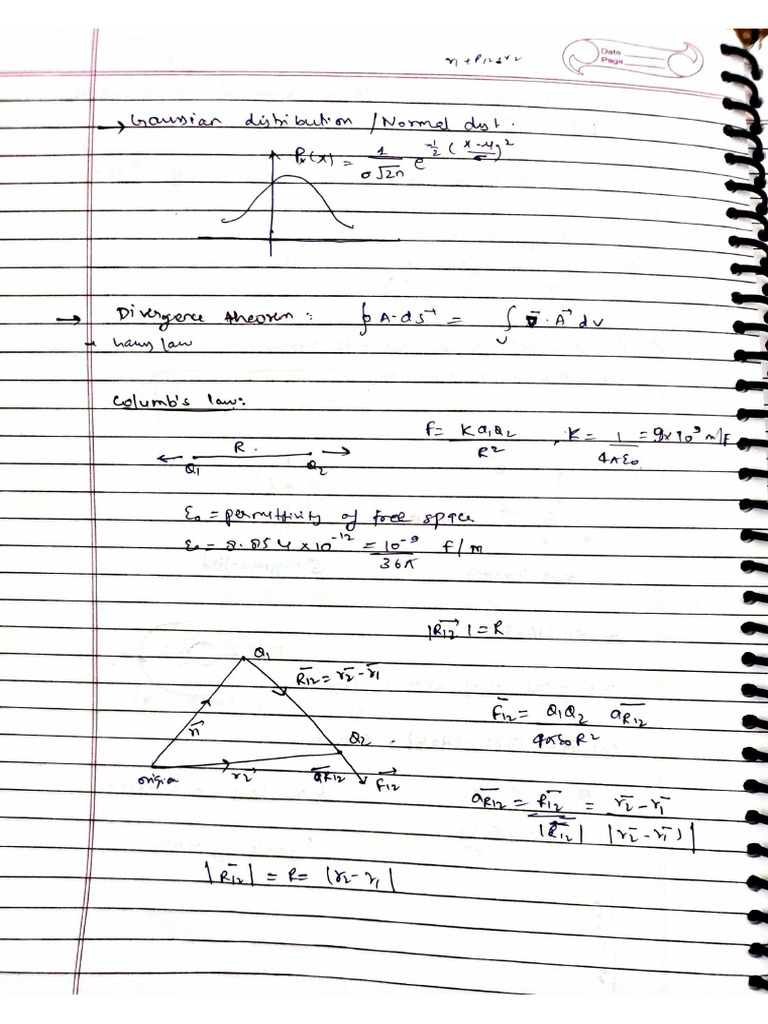 Date
Page
r1 + R12 = r2
→ Gaussian distribution / Normal dist.
Pₓ(x) = 1/(σ√2π) e^(-1/2 ((x-μ)/σ)²)
→ Divergence theorem : ∮ A·ds⃗ = ∫v ∇̄·A⃗ dv
law
Columb's law:
F = KQ1Q2/R² , K = 1/(4πε0) = 9x10⁹ m/F
R
Q1 Q2
ε0 = permittivity of free space
ε0 = 8.854 x10⁻¹² = 10⁻⁹/36π f/m
|R12⃗| = R
Q1
R̄12 = r̄2 - r̄1
r̄1
F̄12 = Q1Q2/(4πε0R²) āR12
Q2
origin r2⃗ āR12 F12⃗
āR12 = R̄12/|R̄12| = (r̄2 - r̄1)/|r̄2 - r̄1)|
|R̄12| = R = |r2 - r1|